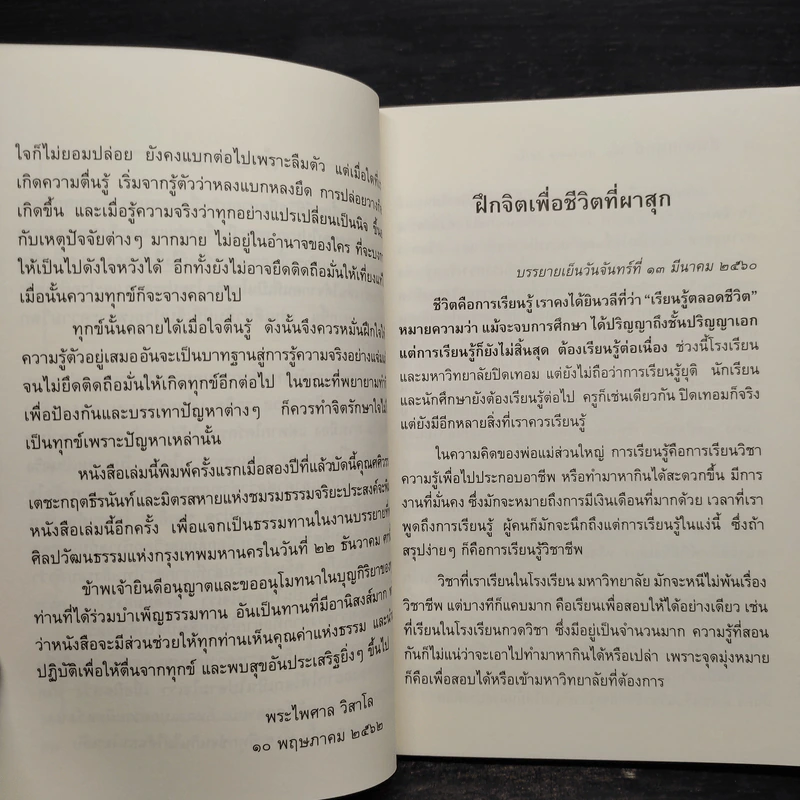 ใจก็ไม่ยอมปล่อย ยังคงแบกต่อไปเพราะลืมตัว แต่เมื่อใดที่
เกิดความตื่นรู้ เริ่มจากรู้ตัวว่าหลงแบกหลงยึด การปล่อยวาง
เกิดขึ้น และเมื่อรู้ความจริงว่าทุกอย่างแปรเปลี่ยนเป็นนิจ ขึ้น
กับเหตุปัจจัยต่างๆ มากมาย ไม่อยู่ในอำนาจของใคร ที่จะ
ให้เป็นไปดังใจหวังได้ อีกทั้งยังไม่อาจยึดติดถือมั่นให้เที่ยง
เมื่อนั้นความทุกข์ก็จะจางคลายไป
ทุกข์นั้นคลายได้เมื่อใจตื่นรู้ ดังนั้นจึงควรหมั่นฝึกใจ
ความรู้ตัวอยู่เสมออันจะเป็นบาทฐานสู่การรู้ความจริงอย่าง
จนไม่ยึดติดถือมั่นให้เกิดทุกข์อีกต่อไป ในขณะที่พยายาม
เพื่อป้องกันและบรรเทาปัญหาต่างๆ ก็ควรทำจิตรักษาใจ
เป็นทุกข์เพราะปัญหาเหล่านั้น
หนังสือเล่มนี้พิมพ์ครั้งแรกเมื่อสองปีที่แล้วบัดนี้คุณ
เตชะกฤตธีรนันท์และมิตรสหายแห่งชมรมธรรมจริยะประสงค์จะ
หนังสือเล่มนี้อีกครั้ง เพื่อแจกเป็นธรรมทานในงานบรรยายที่
ศิลปวัฒนธรรมแห่งกรุงเทพมหานครในวันที่ ๒๒ ธันวาคม
ข้าพเจ้ายินดีอนุญาตและขออนุโมทนาในบุญกิริยาของ
ท่านที่ได้ร่วมบำเพ็ญธรรมทาน อันเป็นทานที่มีอานิสงส์มาก
ว่าหนังสือจะมีส่วนช่วยให้ทุกท่านเห็นคุณค่าแห่งธรรม และ
ปฏิบัติเพื่อให้ตื่นจากทุกข์ และพบสุขอันประเสริฐยิ่งๆ ขึ้นไป
พระไพศาล วิสาโล
๑๐ พฤษภาคม ๒๕๖๒
ฝึกจิตเพื่อชีวิตที่ผาสุก
บรรยายเย็นวันจันทร์ที่ ๑๓ มีนาคม ๒๕๖๐
ชีวิตคือการเรียนรู้ เราคงได้ยินวลีที่ว่า “เรียนรู้ตลอดชีวิต”
หมายความว่า แม้จะจบการศึกษา ได้ปริญญาถึงชั้นปริญญาเอก
แต่การเรียนรู้ก็ยังไม่สิ้นสุด ต้องเรียนรู้ต่อเนื่อง ช่วงนี้โรงเรียน
และมหาวิทยาลัยปิดเทอม แต่ยังไม่ถือว่าการเรียนรู้ยุติ นักเรียน
และนักศึกษายังต้องเรียนรู้ต่อไป ครูก็เช่นเดียวกัน ปิดเทอมก็จริง
แต่ยังมีอีกหลายสิ่งที่เราควรเรียนรู้
ในความคิดของพ่อแม่ส่วนใหญ่ การเรียนรู้คือการเรียนวิชา
ความรู้เพื่อไปประกอบอาชีพ หรือทำมาหากินได้สะดวกขึ้น มีการ
งานที่มั่นคง ซึ่งมักจะหมายถึงการมีเงินเดือนที่มากด้วย เวลาที่เรา
พูดถึงการเรียนรู้ ผู้คนก็มักจะนึกถึงแต่การเรียนรู้ในแง่นี้ ซึ่งถ้า
สรุปง่ายๆ ก็คือการเรียนรู้วิชาชีพ
วิชาที่เราเรียนในโรงเรียน มหาวิทยาลัย มักจะหนีไม่พ้นเรื่อง
วิชาชีพ แต่บางทีก็แคบมาก คือเรียนเพื่อสอบให้ได้อย่างเดียว เช่น
ที่เรียนในโรงเรียนกวดวิชา ซึ่งมีอยู่เป็นจำนวนมาก ความรู้ที่สอน
กันก็ไม่แน่ว่าจะเอาไปทำมาหากินได้หรือเปล่า เพราะจุดมุ่งหมาย
ก็คือเพื่อสอบได้หรือเข้ามหาวิทยาลัยที่ต้องการ